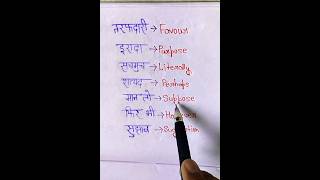 तरफदारी → Favour
इरादा → Purpose
सचमुच → Literally
शायद → Perhaps
मान लो → Suppose
फिर भी → However
सुझाव → Suggestion